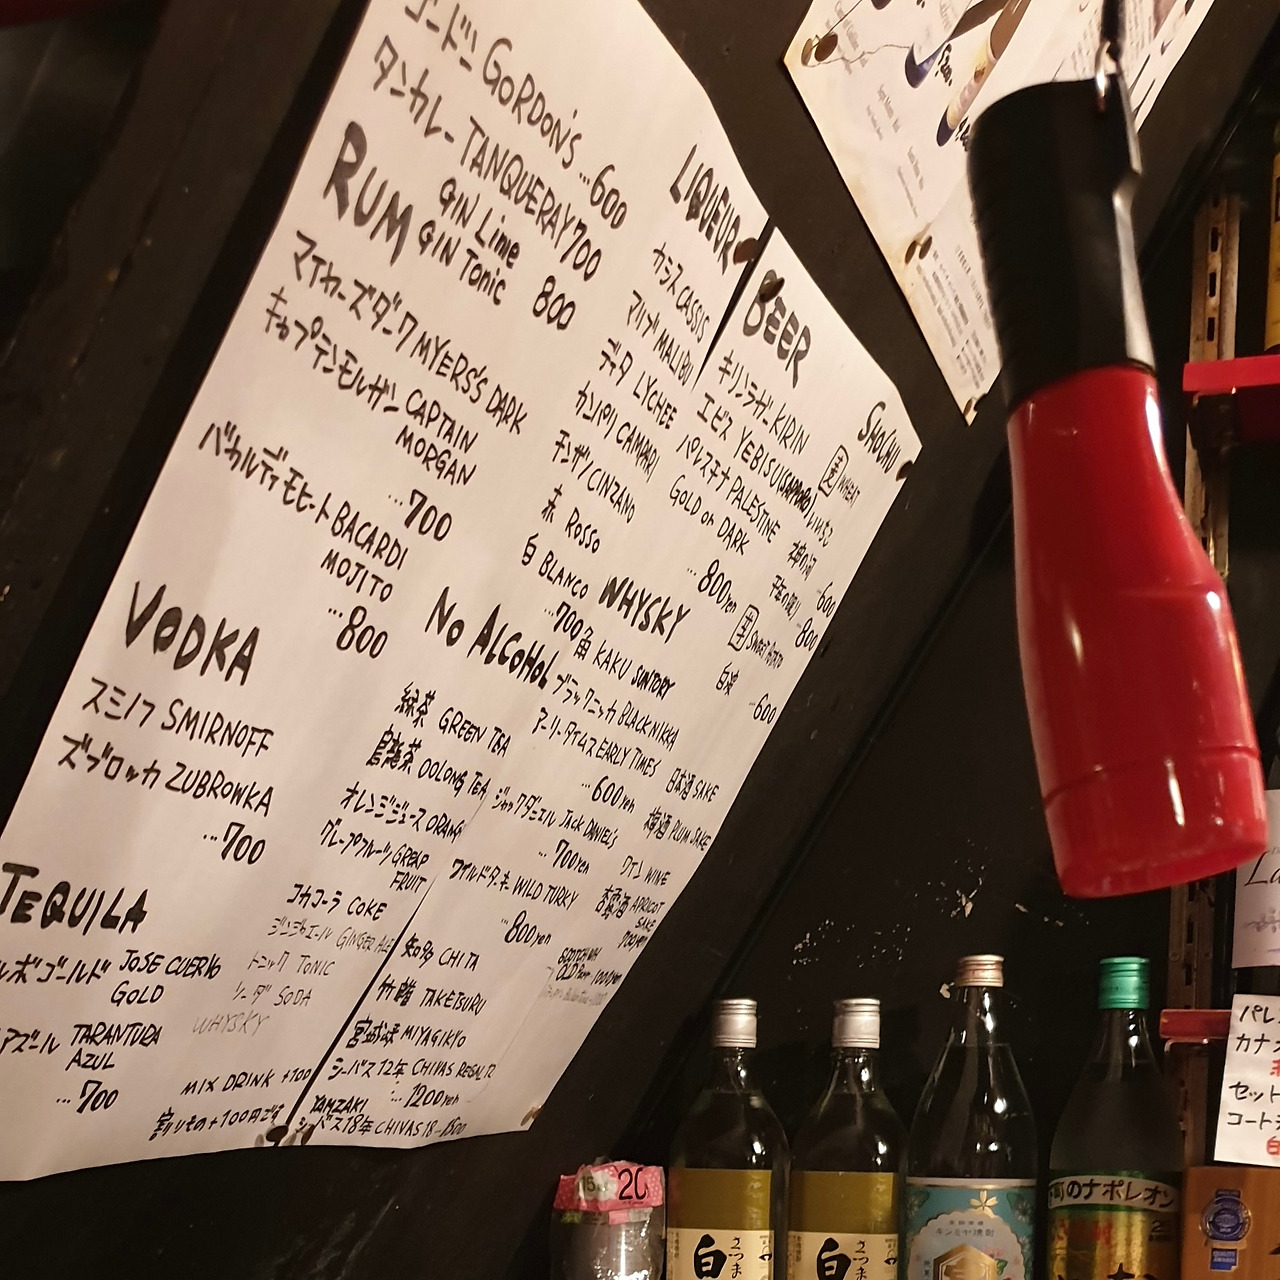 ゴードン GORDON'S ...600
タンカレー TANQUERAY 700
GIN Lime
GIN Tonic 800
RUM
マイヤーズダーク MYERS'S DARK
キャプテンモルガン CAPTAIN
MORGAN
...700
バカルディモヒート BACARDI
MOJITO
...800
VODKA
スミノフ SMIRNOFF
ズブロッカ ZUBROWKA
...700
TEQUILA
ルボゴールド JOSE CUERVO
GOLD
アズール TARANTURA
AZUL
...700
LIQUEUR
カシス CASSIS
マリブ MALIBU
ディタ LYCHEE
カンパリ CAMPARI
チンザノ CINZANO
赤 ROSSO
白 BLANCO
...700
NO ALCOHOL
緑茶 GREEN TEA
烏龍茶 OOLONG TEA
オレンジジュース ORANG
グレープフルーツ GREAP
FRUIT
コカコーラ COKE
ジンジャエール GINGER ALE
トニック TONIC
ソーダ SODA
WHYSKY
MIX DRINK +100
割りもの+100円です
BEER
キリンラガー KIRIN
エビス YEBISU SAPPORO
パレスチナ PALESTINE
GOLD or DARK
...800yen
WHYSKY
角 KAKU SUNTORY
ブラックニッカ BLACK NIKKA
アーリータイムス EARLY TIMES
...600yen
ジャックダニエル JACK DANIEL'S
...700yen
ワイルドターキー WILD TURKY
...800yen
知多 CHITA
竹鶴 TAKETSURU
宮城峡 MIYAGIKYO
シーバス12年 CHIVAS REGAL 12
...1200yen
YAMZAKI
シーバス18年 CHIVAS 18 1500
SHOCHU
麦 WHEAT
いいちこ
神の河 600
800
芋 SWEET POTATO
白波
...600
日本酒 SAKE
梅酒 PLUM SAKE
ワイン WINE
杏露酒 APRICOT
SAKE
700yen
1000yen
15
20
白
さつま
白
さつま
キンミヤ焼酎
町のナポレオン
25
パレ
カナ
セット
コート
白